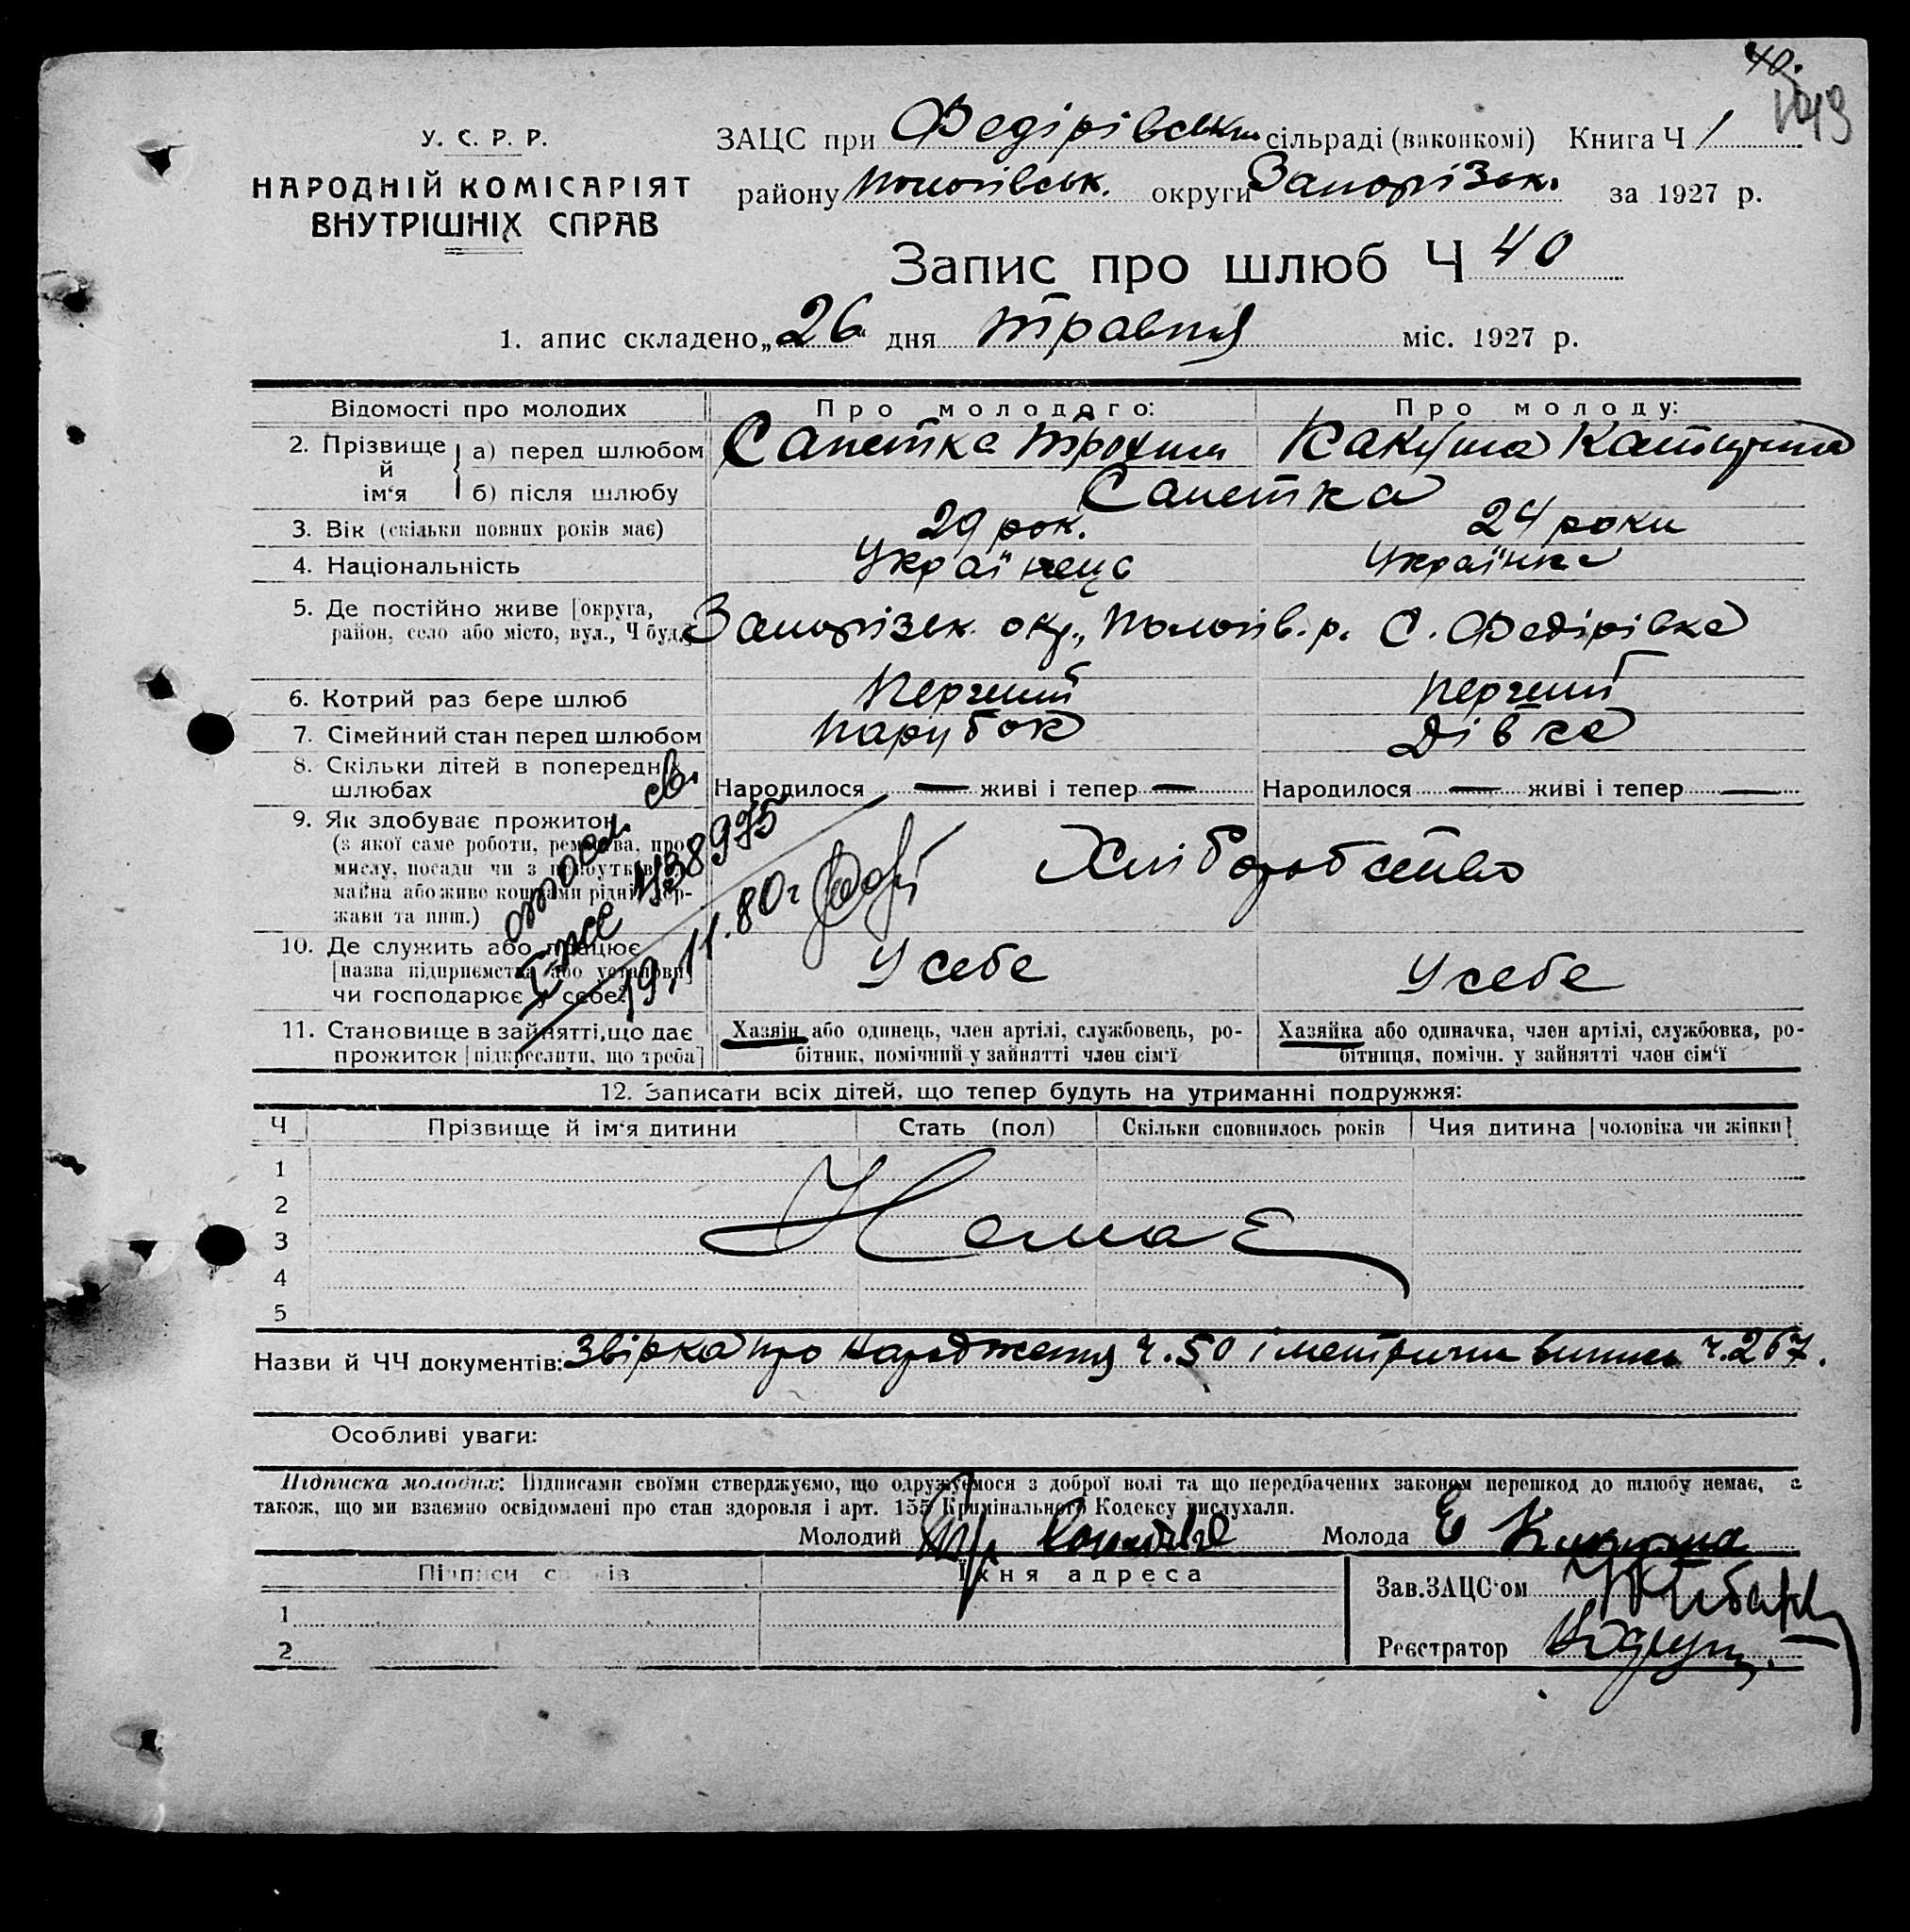 40.
У. С. Р. Р.
НАРОДНІЙ КОМІСАРІЯТ
ВНУТРІШНІХ СПРАВ
ЗАЦС при Федірівськ. сільраді (виконкомі) Книга Ч 1
району Пологівськ. округи Запорізьк. за 1927 р.
Запис про шлюб Ч 40
1. апис складено „26“ дня травня міс. 1927 р.
Відомості про молодих Про молодого: Про молоду:
2. Прізвище й ім‘я а) перед шлюбом Сапетка Трохим Какуша Катерина
б) після шлюбу Сапетка
3. Вік (скільки повних років має) 29 рок. 24 роки
4. Національність Українець Українка
5. Де постійно живе [округа,
район, село або місто, вул., Ч буд.] Запорізьк. окр., Пологів. р. С. Федірівка
6. Котрий раз бере шлюб Перший Перший
7. Сімейний стан перед шлюбом Парубок Дівка
8. Скільки дітей в попередніх
шлюбах Народилося — живі і тепер — Народилося — живі і тепер —
9. Як здобуває прожиток
(з якої саме роботи, ремества, про-
мислу, посади чи з прибутків
майна або живе коштами рідні, дер-
жави та инш.) Хліборобство
10. Де служить або працює
[назва підприємства або установи]
чи господарює у себе. У себе У себе
438975
19.11.80г
11. Становище в зайнятті, що дає
прожиток [підкреслити, що треба]
Хазяін або одинець, член артілі, службовець, ро-
бітник, помічний у зайнятті член сім‘ї
Хазяйка або одиначка, член артілі, службовка, ро-
бітниця, помічн. у зайнятті член сім‘ї
12. Записати всіх дітей, що тепер будуть на утриманні подружжя:
Ч Прізвище й ім‘я дитини Стать (пол) Скільки сповнилось років Чия дитина [чоловіка чи жінки]
1
2
3 Немає
4
5
Назви й ЧЧ документів: Звірка про народження ч. 50 і метрична випись ч. 267.
Особливі уваги:
Підписка молодих: Підписами своїми стверджуємо, що одружуємося з доброї волі та що передбачених законом перешкод до шлюбу немає, а
також, що ми взаємно освідомлені про стан здоровля і арт. 155 Кримінального Кодексу вислухали.
Молодий Молода Е Какуша
Підписи свідків Їхня адреса
Зав. ЗАЦС‘ом
1
Реєстратор
2